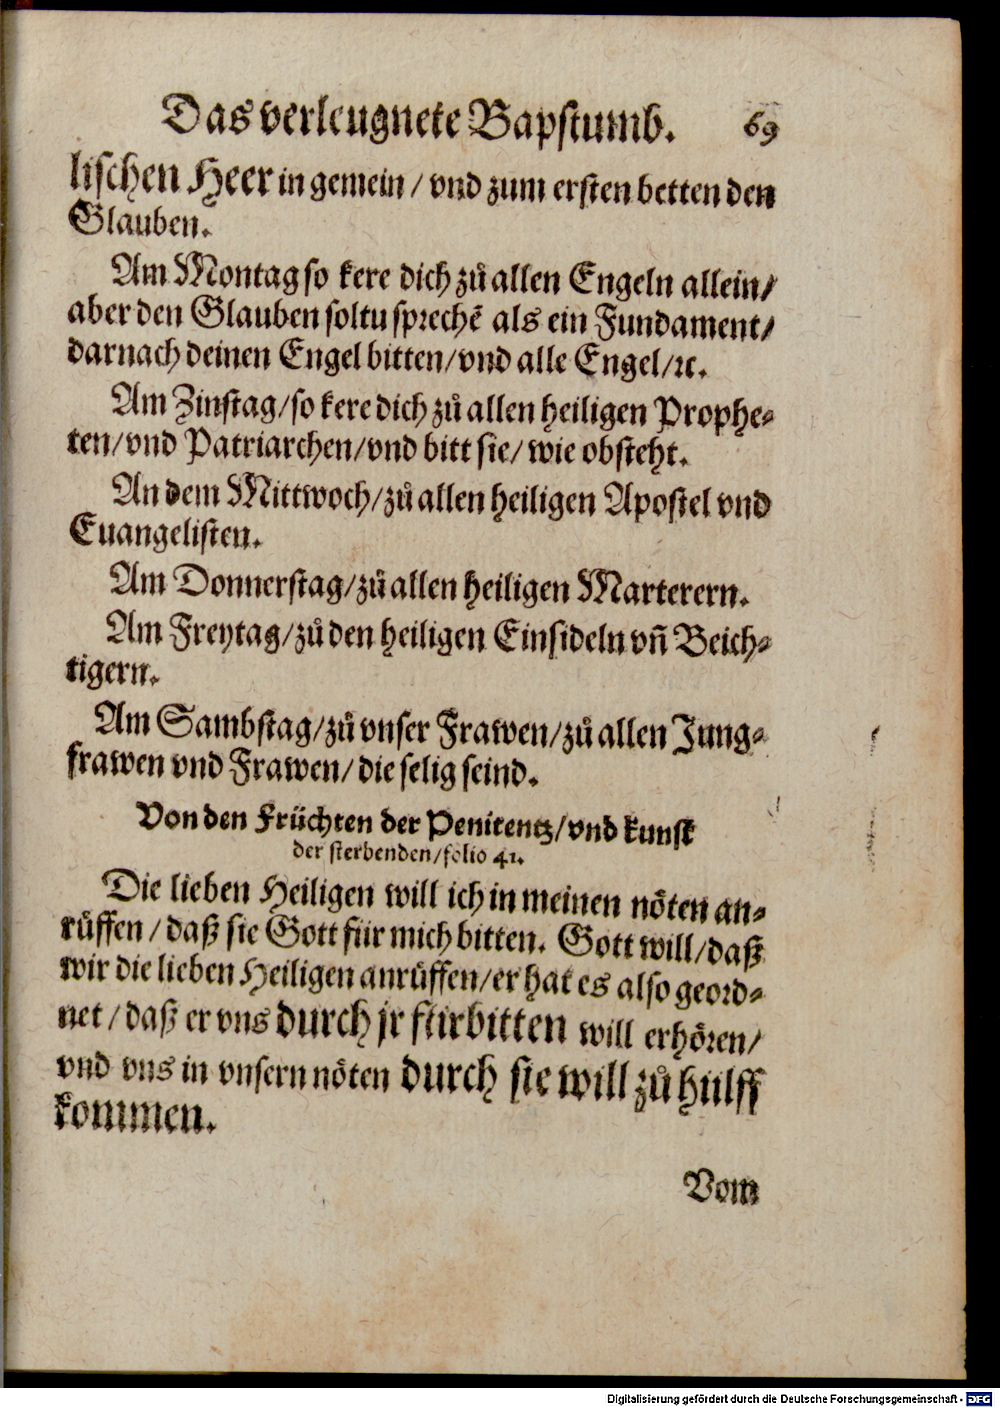 Das verleugnete Bapstumb. 69
lischen Heer in gemein / vnd zum ersten betten den
Glauben.
Am Montag so kere dich zů allen Engeln allein/
aber den Glauben soltu sprechē als ein Fundament/
darnach deinen Engel bitten/vnd alle Engel/ꝛc.
Am Zinstag/so kere dich zů allen heiligen Prophe⸗
ten/vnd Patriarchen/vnd bitt sie/ wie obsteht.
An dem Mittwoch/zů allen heiligen Apostel vnd
Euangelisten.
Am Donnerstag/zů allen heiligen Marterern.
Am Freytag/zů den heiligen Einsideln vñ Beich⸗
tigern.
Am Sambstag/zů vnser Frawen/zů allen Jung⸗
frawen vnd Frawen/ die selig seind.
Von den Früchten der Penitentz/vnd kunst
der sterbenden/folio 41.
Die lieben Heiligen will ich in meinen nöten an⸗
růffen / daß sie Gott für mich bitten. Gott will/daß
wir die lieben Heiligen anrůffen/er hat es also geord⸗
net / daß er vns durch jr fürbitten will erhören/
vnd vns in vnsern nöten durch sie will zů hülff
kommen.
Vom
Digitalisierung gefördert durch die Deutsche Forschungsgemeinschaft - DFG